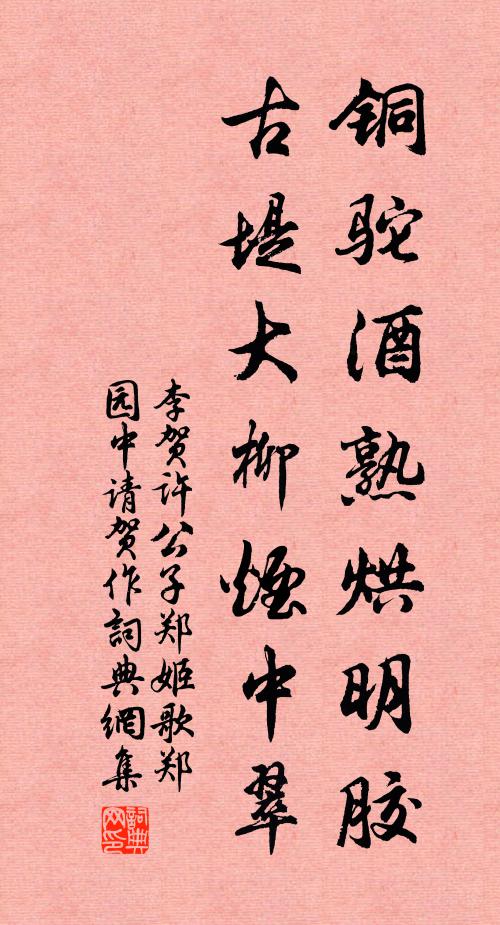 铜驼酒熟烘明胶
古堤大柳煙中翠
李贺许公子郑姬歌郑
园中请贺作詞典網集
詞典网印